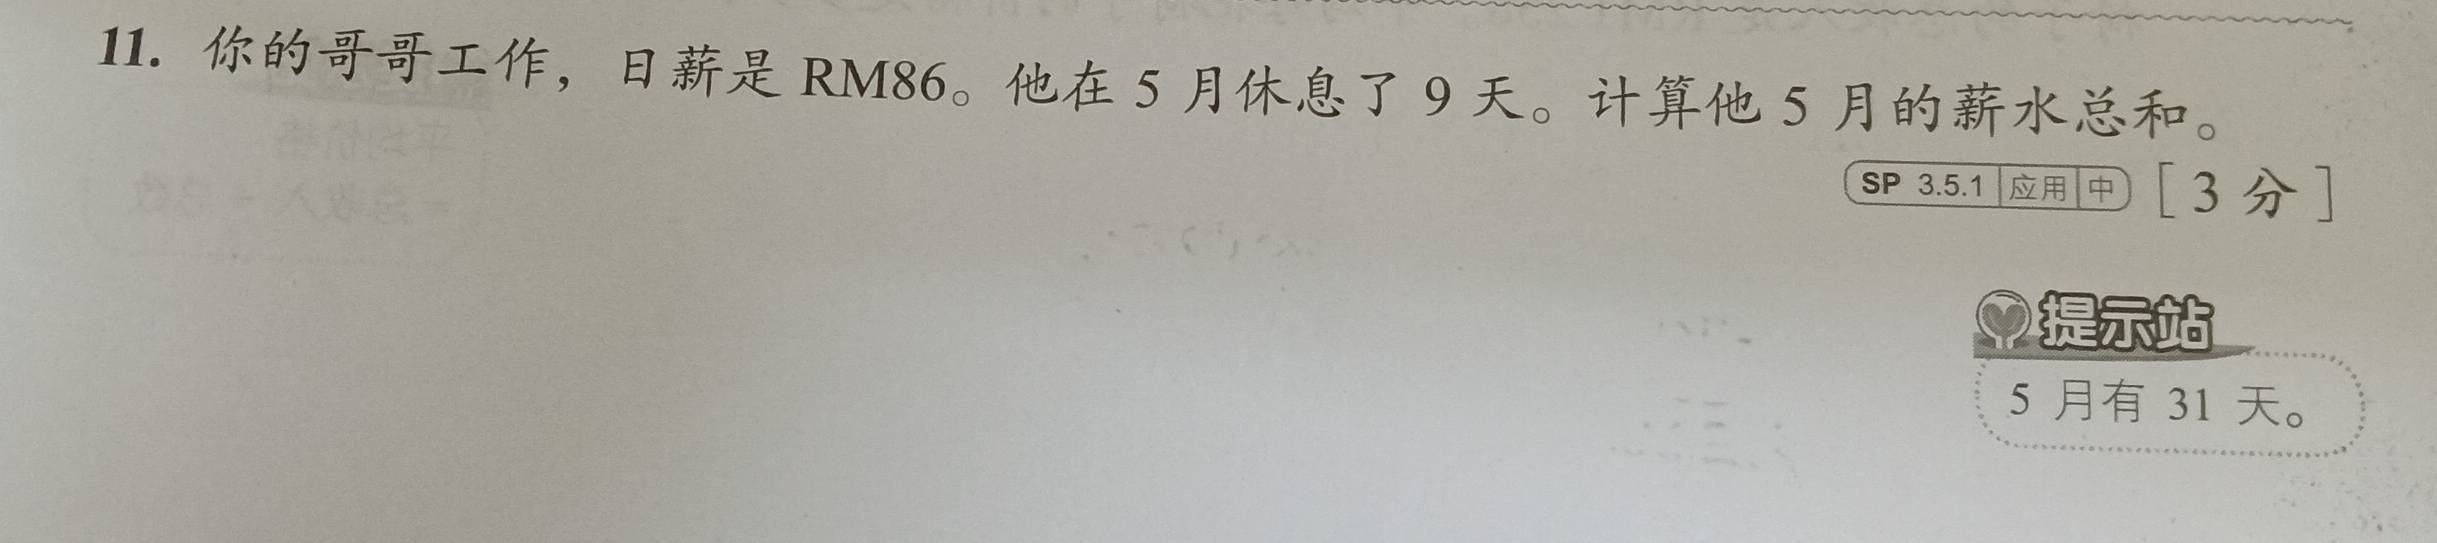 11. 你的哥哥工作，日薪是 RM86。他在 5 月休息了 9 天。计算他 5 月的薪水总和。
SP 3.5.1 应用 中 [ 3 分 ]
提示站
5 月有 31 天。